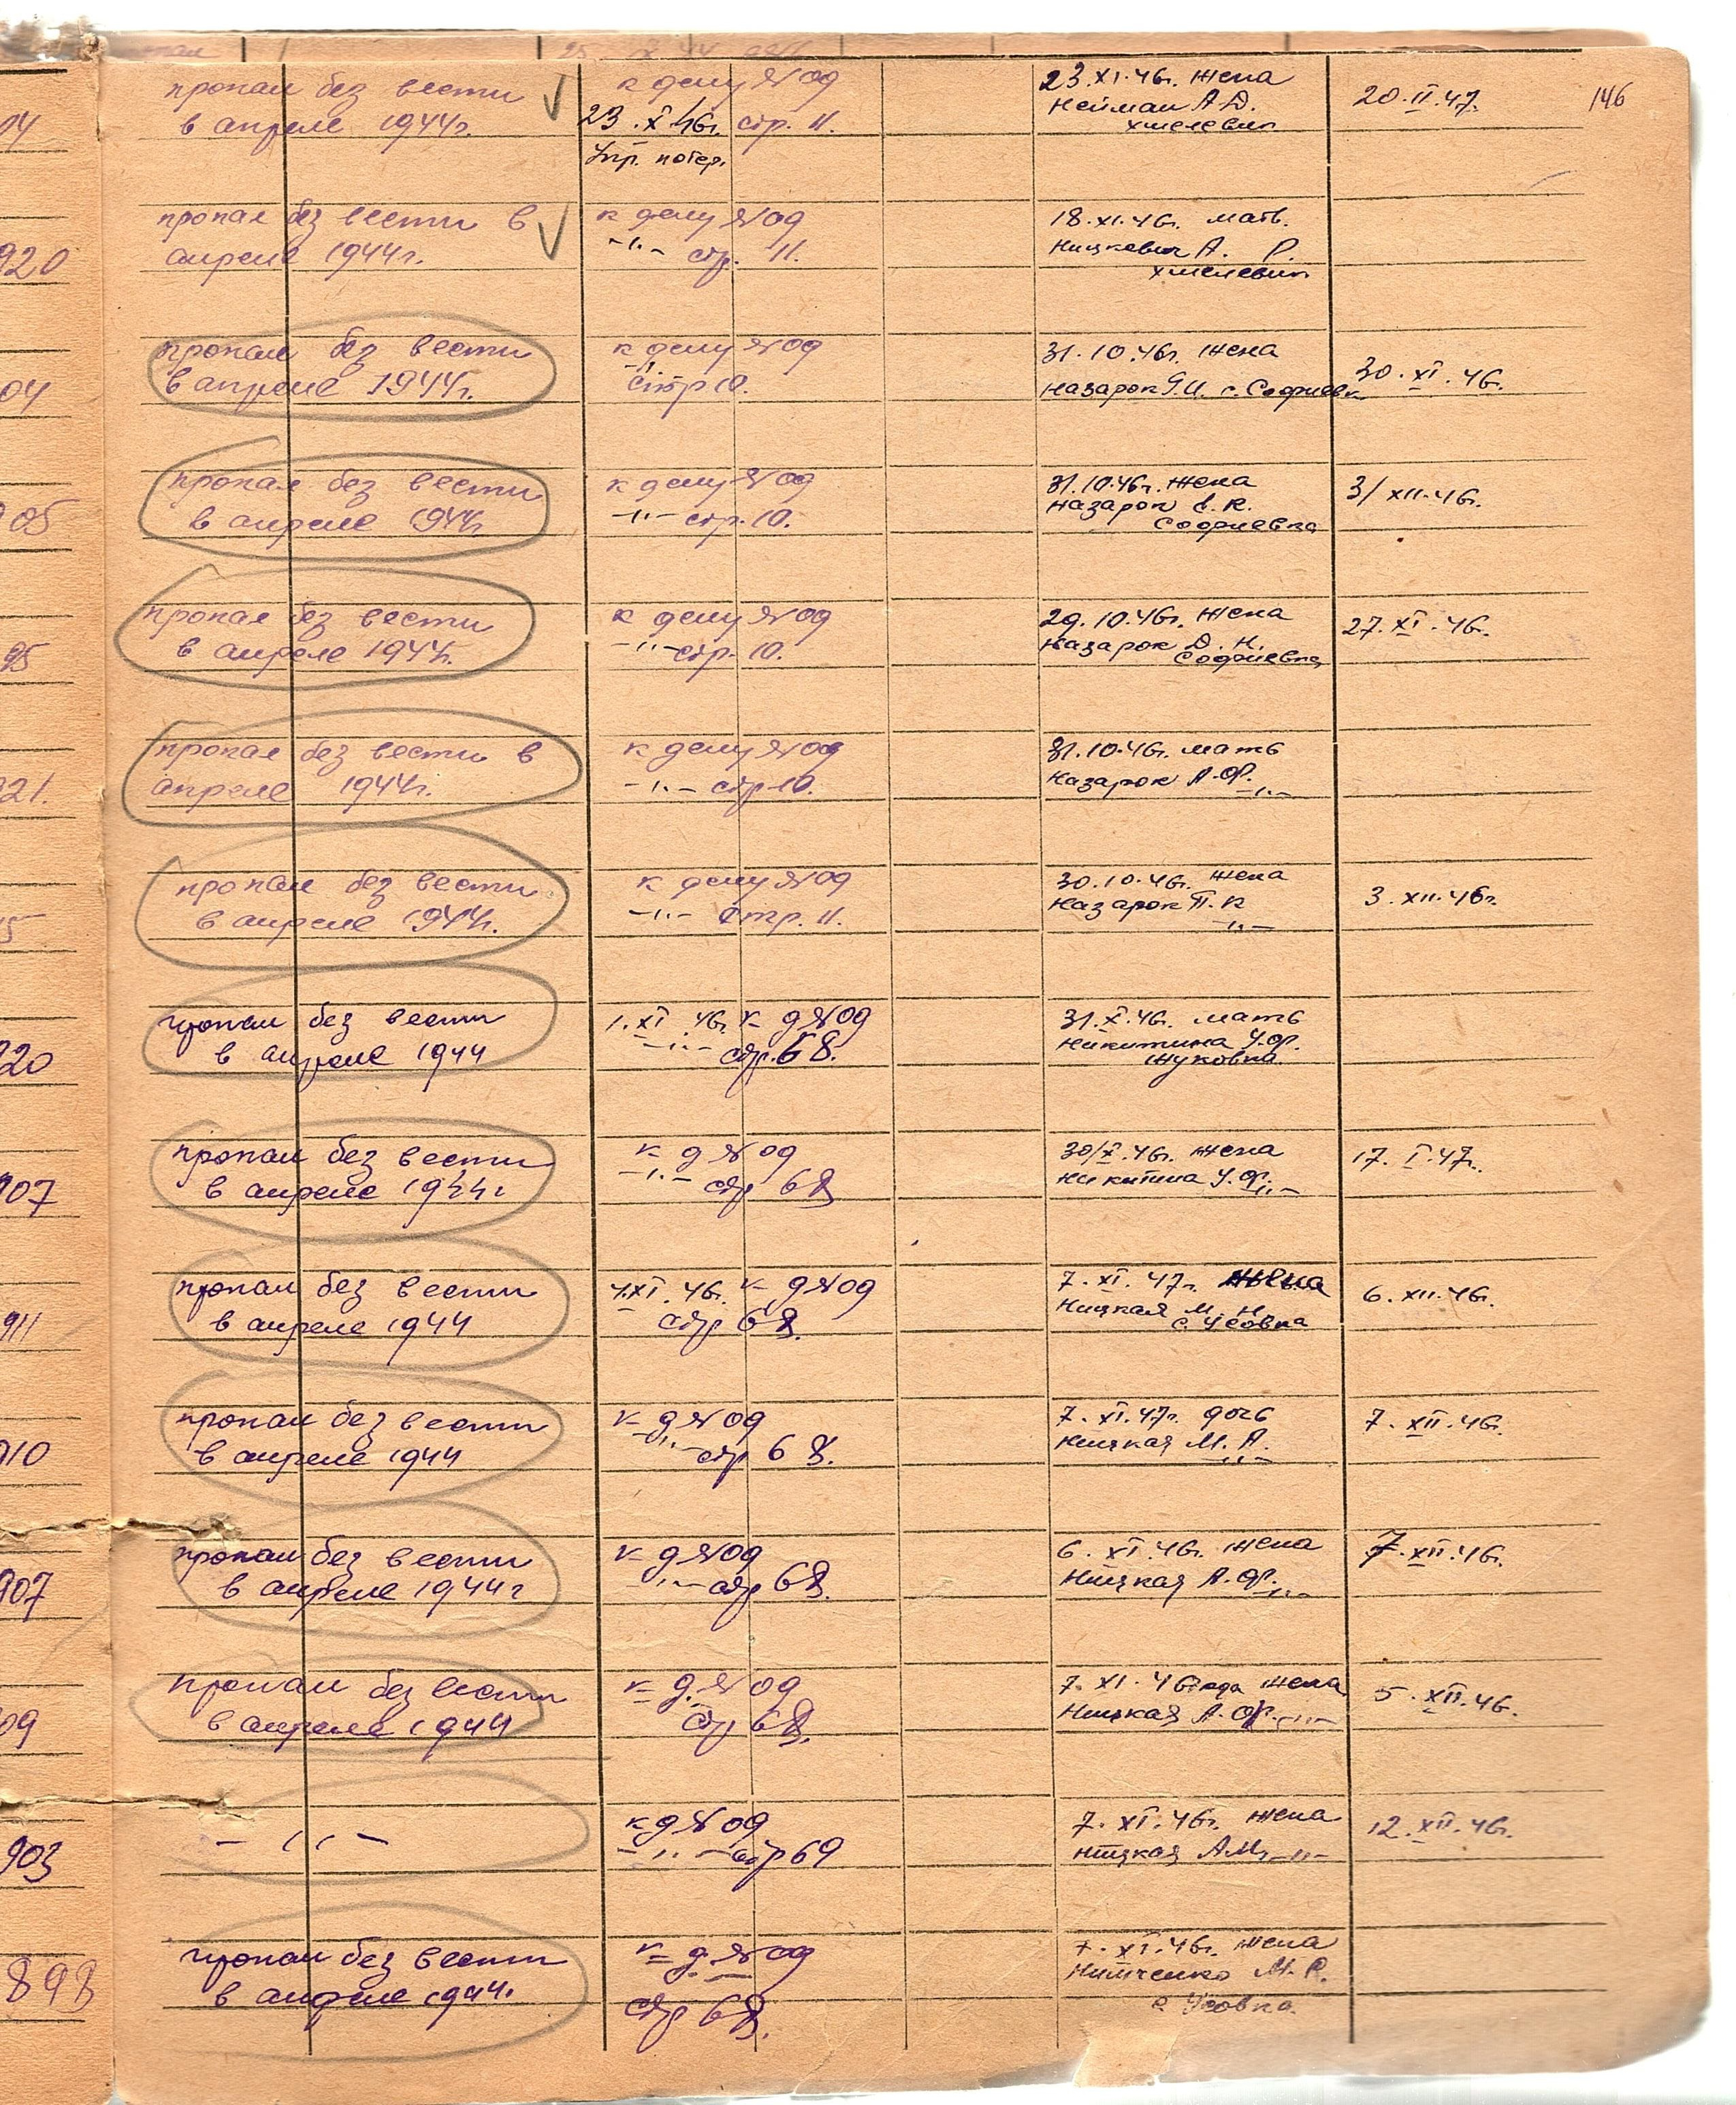 146
14
пропал без вести
в апреле 1944г.
к делу № 09
23.X 46г. стр. 11.
Упр. потер.
23.XI.46г. жена
Нейман А.Д.
Хмелевик
20.II.47.
920
пропал без вести в
апреле 1944г.
к делу № 09
-"- стр. 11.
18.XI.46г. мать.
Ницкевич А. Р.
Хмелевик
04
пропал без вести
в апреле 1944г.
к делу № 09
-"-
стр 10.
31.10.46г. жена
Назарок Г.И. с. Софиевк
30.XI.46.
905
пропал без вести
в апреле 1944г
к делу № 09
-"- стр. 10.
31.10.46г. жена
Назарок Е. К.
Софиевка
3/XII.46г.
95
пропал без вести
в апреле 1944г.
к делу № 09
-"- стр. 10.
29.10.46г. жена
Назарок Д. Н.
Софиевка
27.XI.46.
921.
пропал без вести в
апреле 1944г.
к делу № 09
-"- стр 10.
31.10.46г. мать
Назарок А.Ф. -"-
5
пропал без вести
в апреле 1944г.
к делу № 09
-"- Стр. 11.
30.10.46г. жена
Назарок П. К
-"-
3.XII.46г.
920
пропал без вести
в апреле 1944
1.XI.46г. к д № 09
-"- стр. 68.
31.X.46г. мать
Никитина У.Ф.
Жуковка
907
пропал без вести
в апреле 1944г
к д № 09
-"- стр 68
30/X.46г. жена
Никитина У.Ф. -"-
17.I.47г.
911
пропал без вести
в апреле 1944
4.XI.46г. к д № 09
стр 68.
7.XI.47г. жена
Ницкая М. Н.
с. Усовка
6.XII.46г.
910
пропал без вести
в апреле 1944
к д № 09
-"- стр 68.
7.XI.47г. дочь
Ницкая М. А.
-"-
7.XII.46г.
907
пропал без вести
в апреле 1944г
к д № 09
-"- стр 68.
6.XI.46г. жена
Ницкая А.Ф. -"-
7.XII.46г.
09
пропал без вести
в апреле 1944
к д. № 09
стр 68.
7.XI.46 года жена
Ницкая А.Ф. -"-
5.XII.46.
903
- " -
к д № 09
-"- стр 69
7.XI.46г. жена
Ницкая А.М. -"-
12.XII.46г.
898
пропал без вести
в апреле 1944.
к д. № 09
стр 68.
7.XI.46г. жена
Нитченко М. Р.
с Усовка.